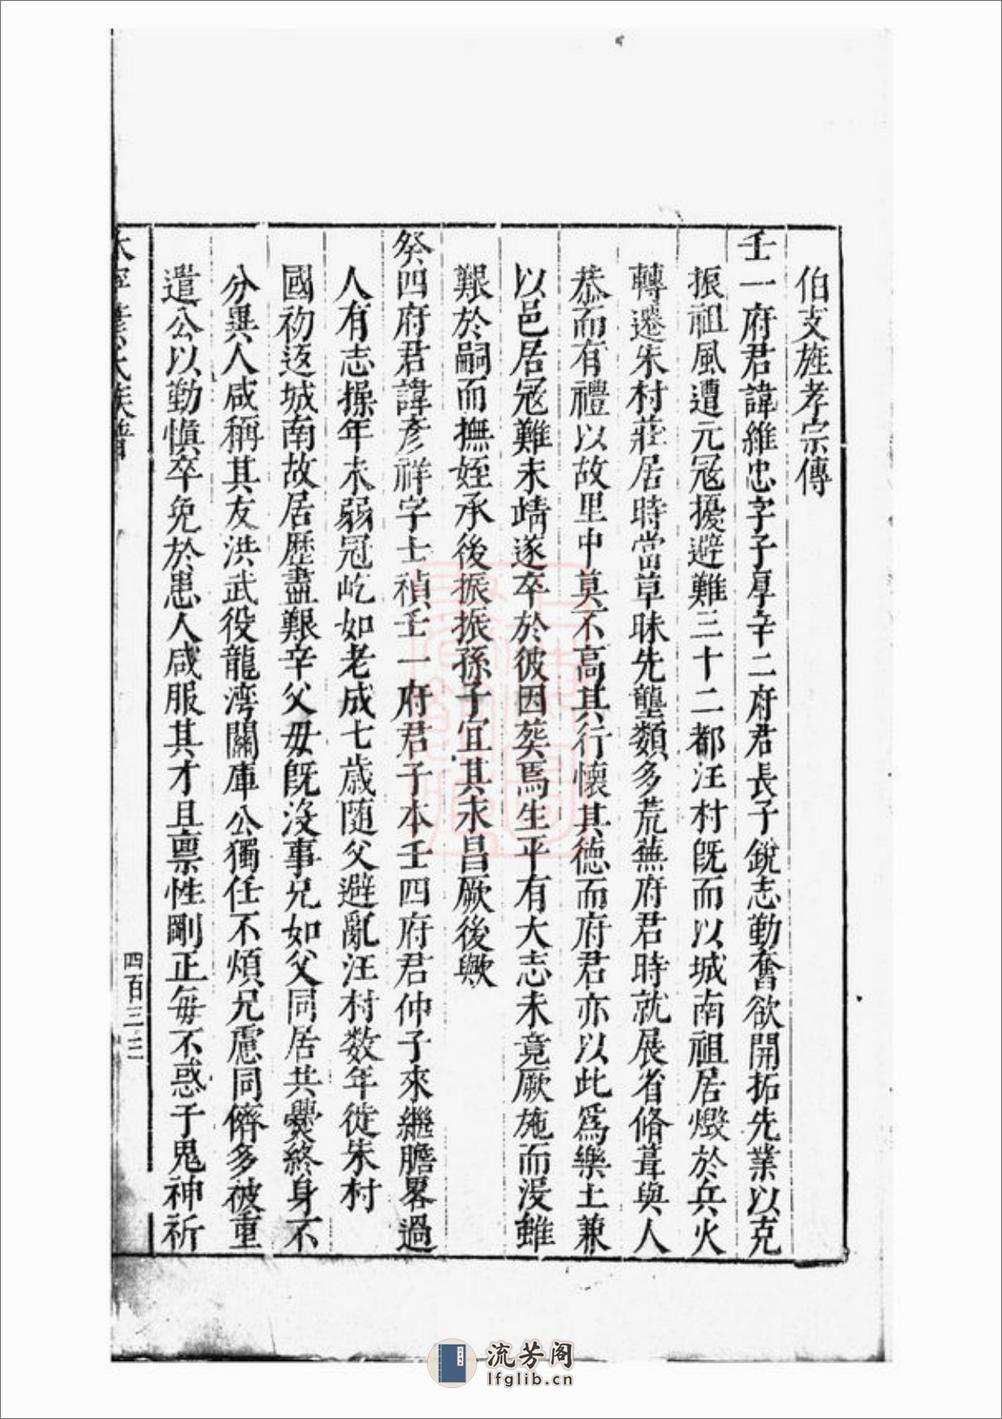 伯支旌孝宗傳
壬一府君諱維忠字子厚辛二府君長子銳志勤奮欲開拓先業以克
振祖風遭元冦擾避難三十二都汪村旣而以城南祖居燬於兵火
轉遷朱村莊居時當草昧先壟類多荒蕪府君時就展省脩葺與人
恭而有禮以故里中莫不高其行懷其德而府君亦以此為樂土兼
以邑居冦難未靖遂卒於彼因葬焉生平有大志未竟厥施而沒雖
艱於嗣而撫姪承後振振孫子宜其永昌厥後歟
癸四府君諱彥祥字士禎壬一府君子本壬四府君仲子來繼膽畧過
人有志操年未弱冠屹如老成七歲隨父避亂汪村数年徙朱村
國初返城南故居歴盡艱辛父毋旣沒事兄如父同居共爨終身不
分異人咸稱其友洪武役龍湾關庫公獨任不煩兄慮同儕多被重
遣公以勤慎卒免於患人咸服其才且禀性剛正毎不惑于鬼神祈
氏族譜
四百三三
流芳阁
lfglib.cn